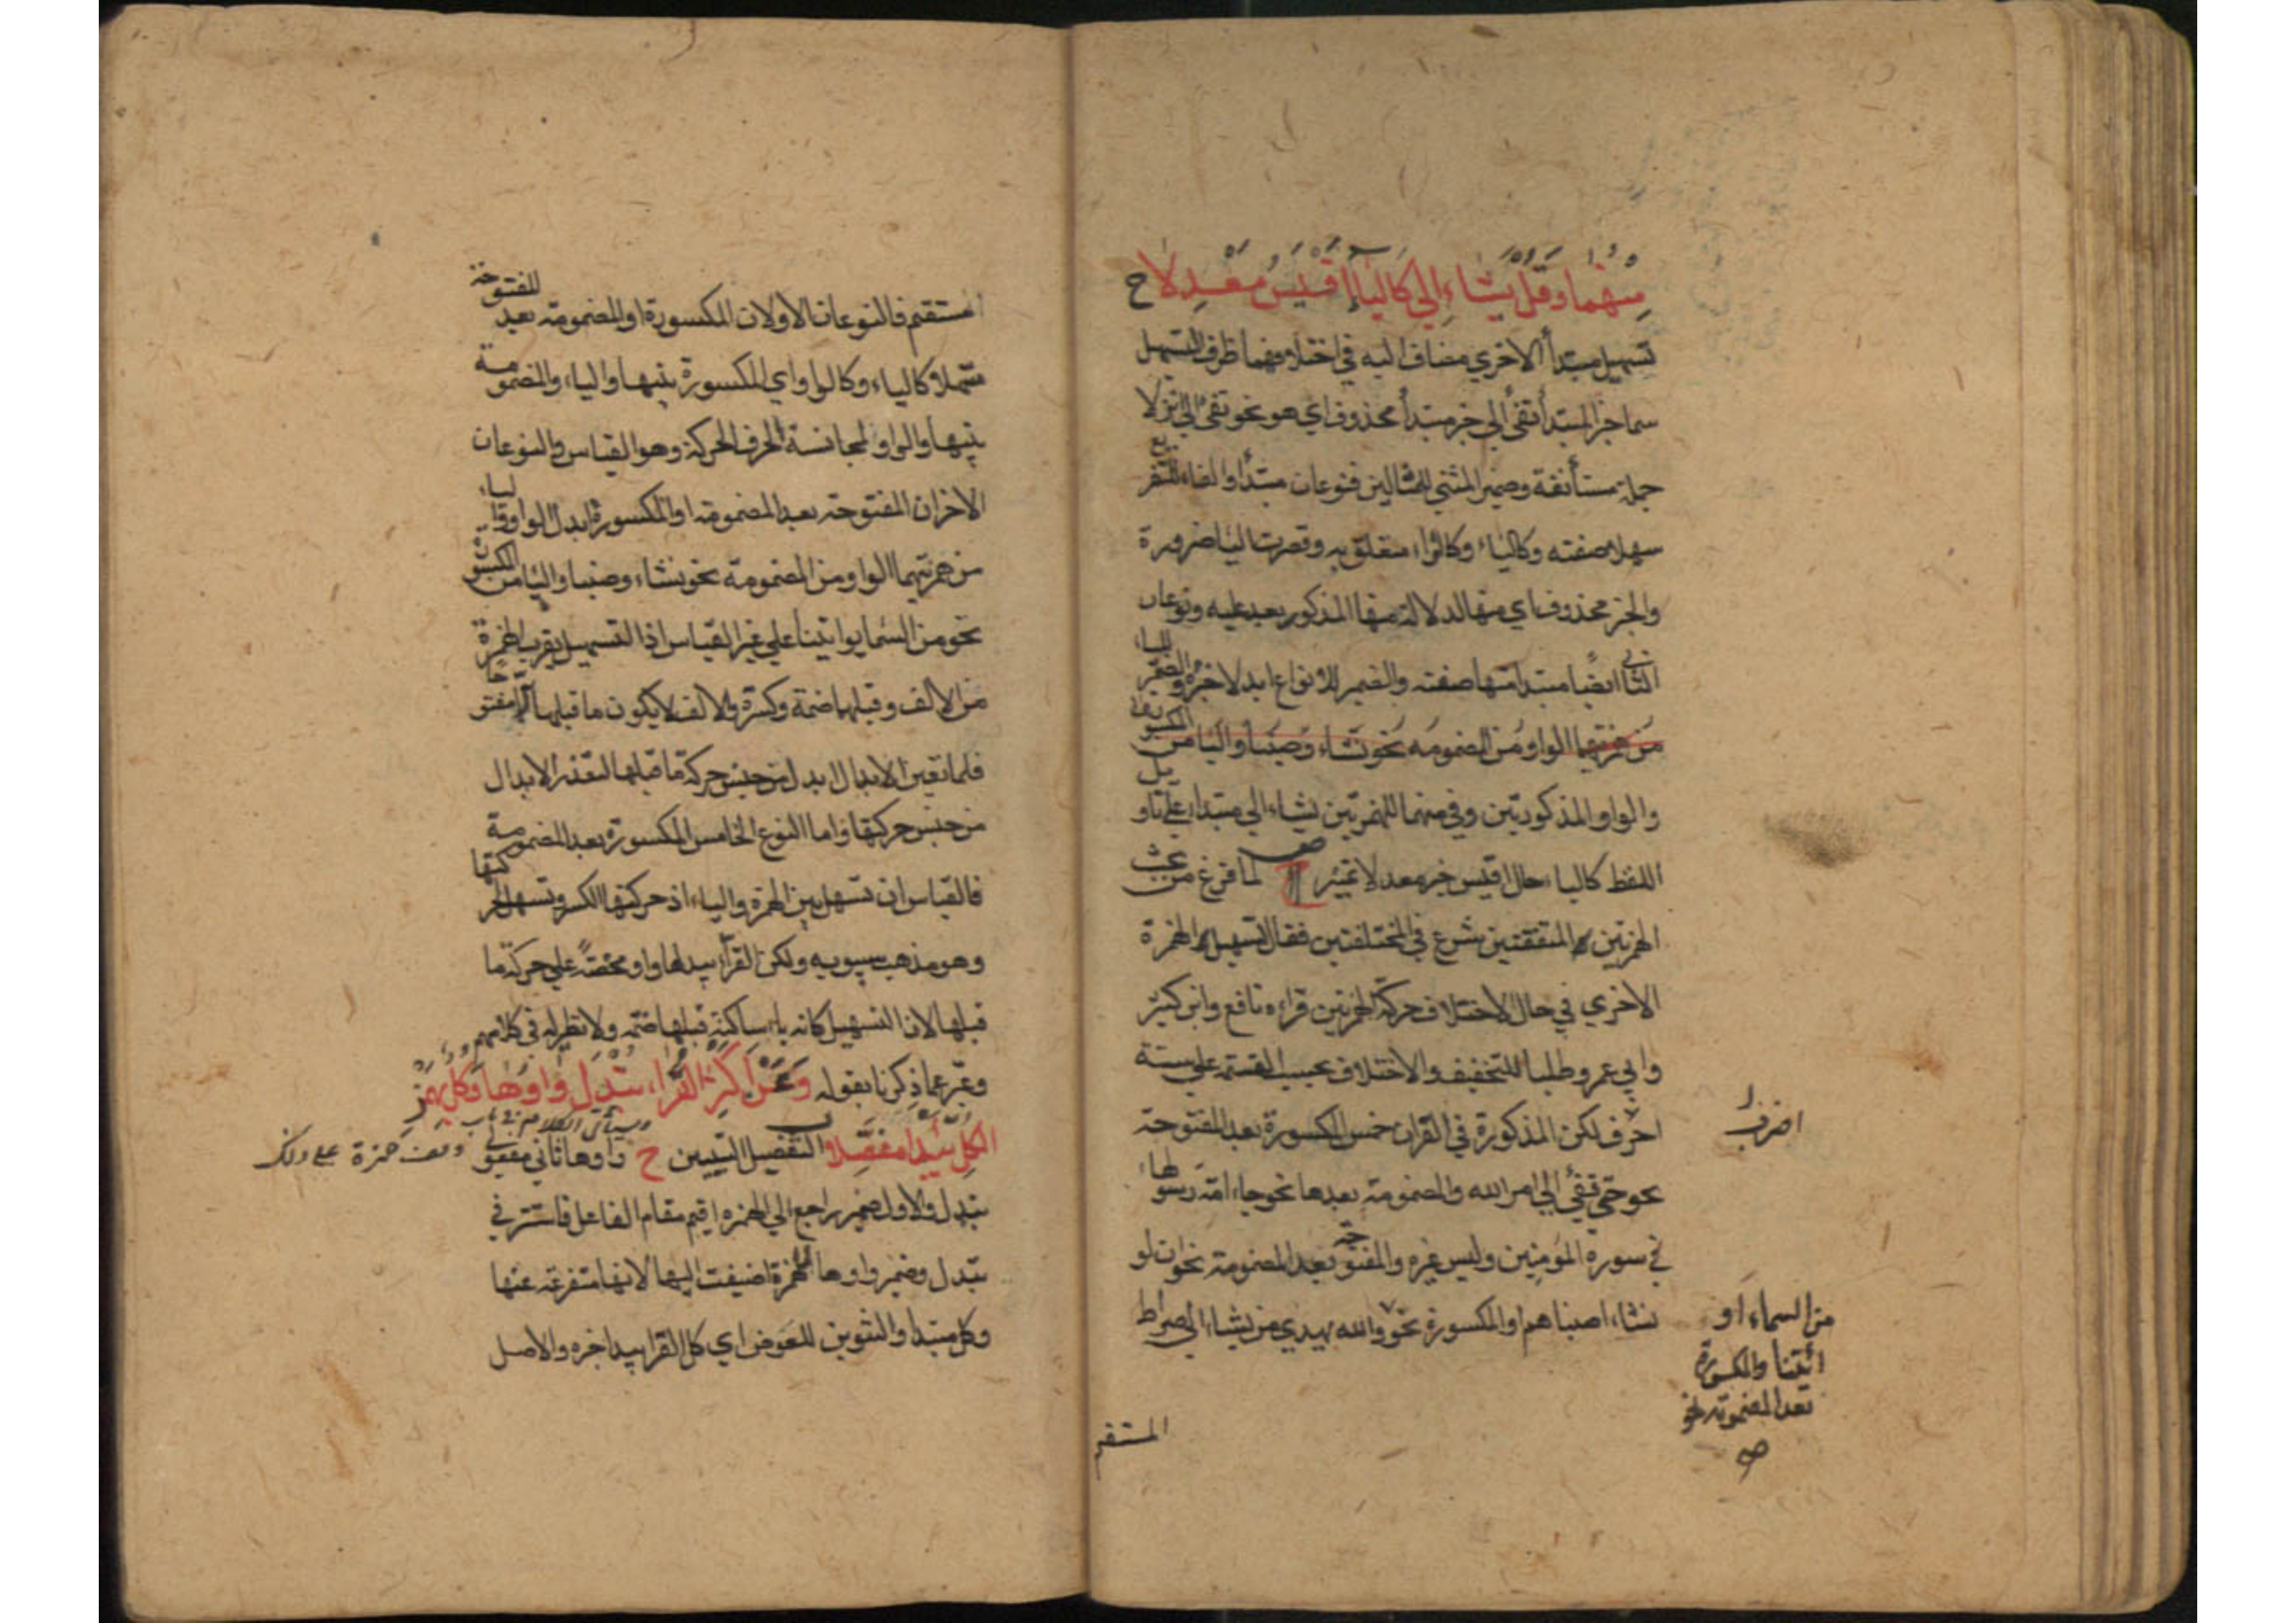 منهما وقل يشاء إلى كالياء أقيس معدلا ح
تسهيل مبتدأ الاخري مضاف اليه في اختلافهما ظرف التسهيل
سما خبر المبتدأ تفئ الي خبر مبتدأ محذوف اي هو نحو تفئ الي انزلا
جملة مستأنفة وضمير المثني للمثالين فنوعان مبتدأ والفاء للتفريع
سهلا صفته وكالياء وكالواو متعلق به وقصرت اليا ضرورة
والخبر محذوف اي منها لدلالة منها المذكور بعد عليه ونوعان
الثاني ايضًا مبتدا منها صفته والضمير للانواع ابدلا خبره والضمير للياء
من همزتيهما الواو ومن المضمومه نحو نشاء وصبنا واليا من المكسورة
والواو المذكورتين وفي منهما للهمزتين يشاء الي مبتدا علي تاويل
اللفظ كالياء حال اقيس خبر معدلا تمييز ص لما فرغ من بحث
الهمزتين المتفقتين شرع في المختلفتين فقال تسهيل الهمزة
الاخري في حال الاختلاف حركة الهمزتين قراءه نافع وابن كثير
وابي عمرو طلبا للتخفيف والاختلاف بحسب القسمة علي ستة
احرف لكن المذكورة في القران خمس المكسورة بعد المفتوحة
اضرب
نحو حتي تفئ الي امر الله والمضمومة بعدها نحو جاء امة رسولها
في سورة المؤمنين وليس غيره والمفتوحة بعد المضمومة نحو ان لو
نشاء اصبناهم او المكسورة نحو والله يهدي من يشاء الي صراط
من السماء او
ائتنا والمكسورة
بعد المضمومة نحو
صح
المستقيم
المستقيم فالنوعان الاولان المكسورة او المضمومة بعد المفتوحة
سهلا كالياء وكالواو اي المكسورة بينها والياء والمضمومة
بينها والواو لمجانسة الحرف الحركة وهو القياس والنوعان
الاخران المفتوحة بعد المضمومة او المكسورة ابدل الواو والياء
من همزتيهما الواو ومن المضمومة نحو نشاء وصبنا واليا من المكسورة
نحو من السما يوايتنا علي غير القياس اذ التسهيل يقرب الهمزة
من الالف وقبلها ضمة وكسرة والالف لا يكون ما قبلها الا مفتوحا
فلما تعين الابدال ابدل من جنس حركة ما قبلها لتعذر الابدال
من جنس حركتها واما النوع الخامس المكسورة بعد المضمومة
فالقياس ان تسهل بين الهمزة والياء اذ حركتها الكسر وتسهل لحركتها
وهو مذهب سيبويه ولكن القراء يبدلها واو محضةً علي حركة ما
قبلها لان التسهيل كانه ياء ساكنة قبلها ضمة ولا نظير له في كلامهم
وعبر عما ذكرنا بقوله وعن أكثر القراء تبدل واوها وكل بهمز
الكل يبدا مفصلا التفصيل التبيين ح واوها ثاني مفعولي
وسيأتي الكلام في باب وقف حمزة علي ذلك
تبدل والاول ضمير راجع الي الهمزه اقيم مقام الفاعل فاستتر في
تبدل وضمير واوها للهمزة اضيفت اليها لانها متفرعة عنها
وكل مبتدا والتنوين للعوض اي كل القرا يبدا خبره والاصل